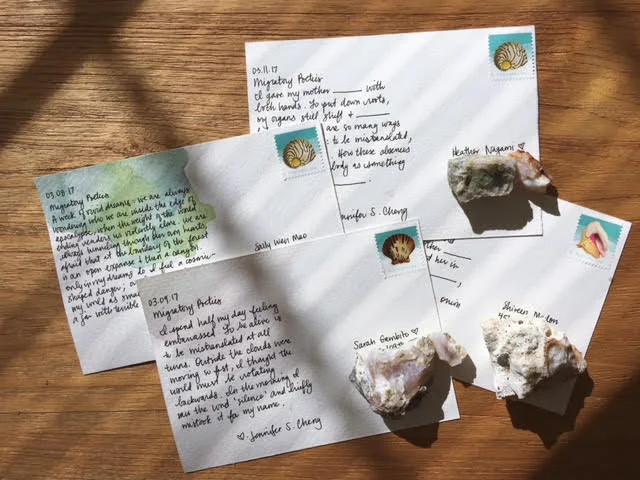 03.11.17
Migratory Poetics
I gave my mother ______ with
both hands. To put down roots,
my organs still shift + ______
are so many ways
to be mistranslated,
How these absences
body as something
Jennifer S. Cheng
Heather Nagami ♡
03.08.17
Migratory Poetics
A week of vivid dreams: we are always
wondering who we are inside the edge of
apocalypse, when the weight of the world
ending renders us violently clean. We are
always tunneling through our own hands,
afraid that at the boundary of the forest
is an open expanse + then a canyon.
only in my dreams do I feel a cosmic-
shaped danger;
my world as small
a jar with terrible
Sally Wen Mao
03.09.17
Migratory Poetics
I spend half my day feeling
embarrassed. To be alive is
to be mistranslated at all
turns. Outside the clouds were
moving so fast, I thought the
world must be rotating
backwards. In the morning I
saw the word "silence" and briefly
mistook it for my name.
♡. Jennifer S. Cheng
Sarah Gambito ♡
her in